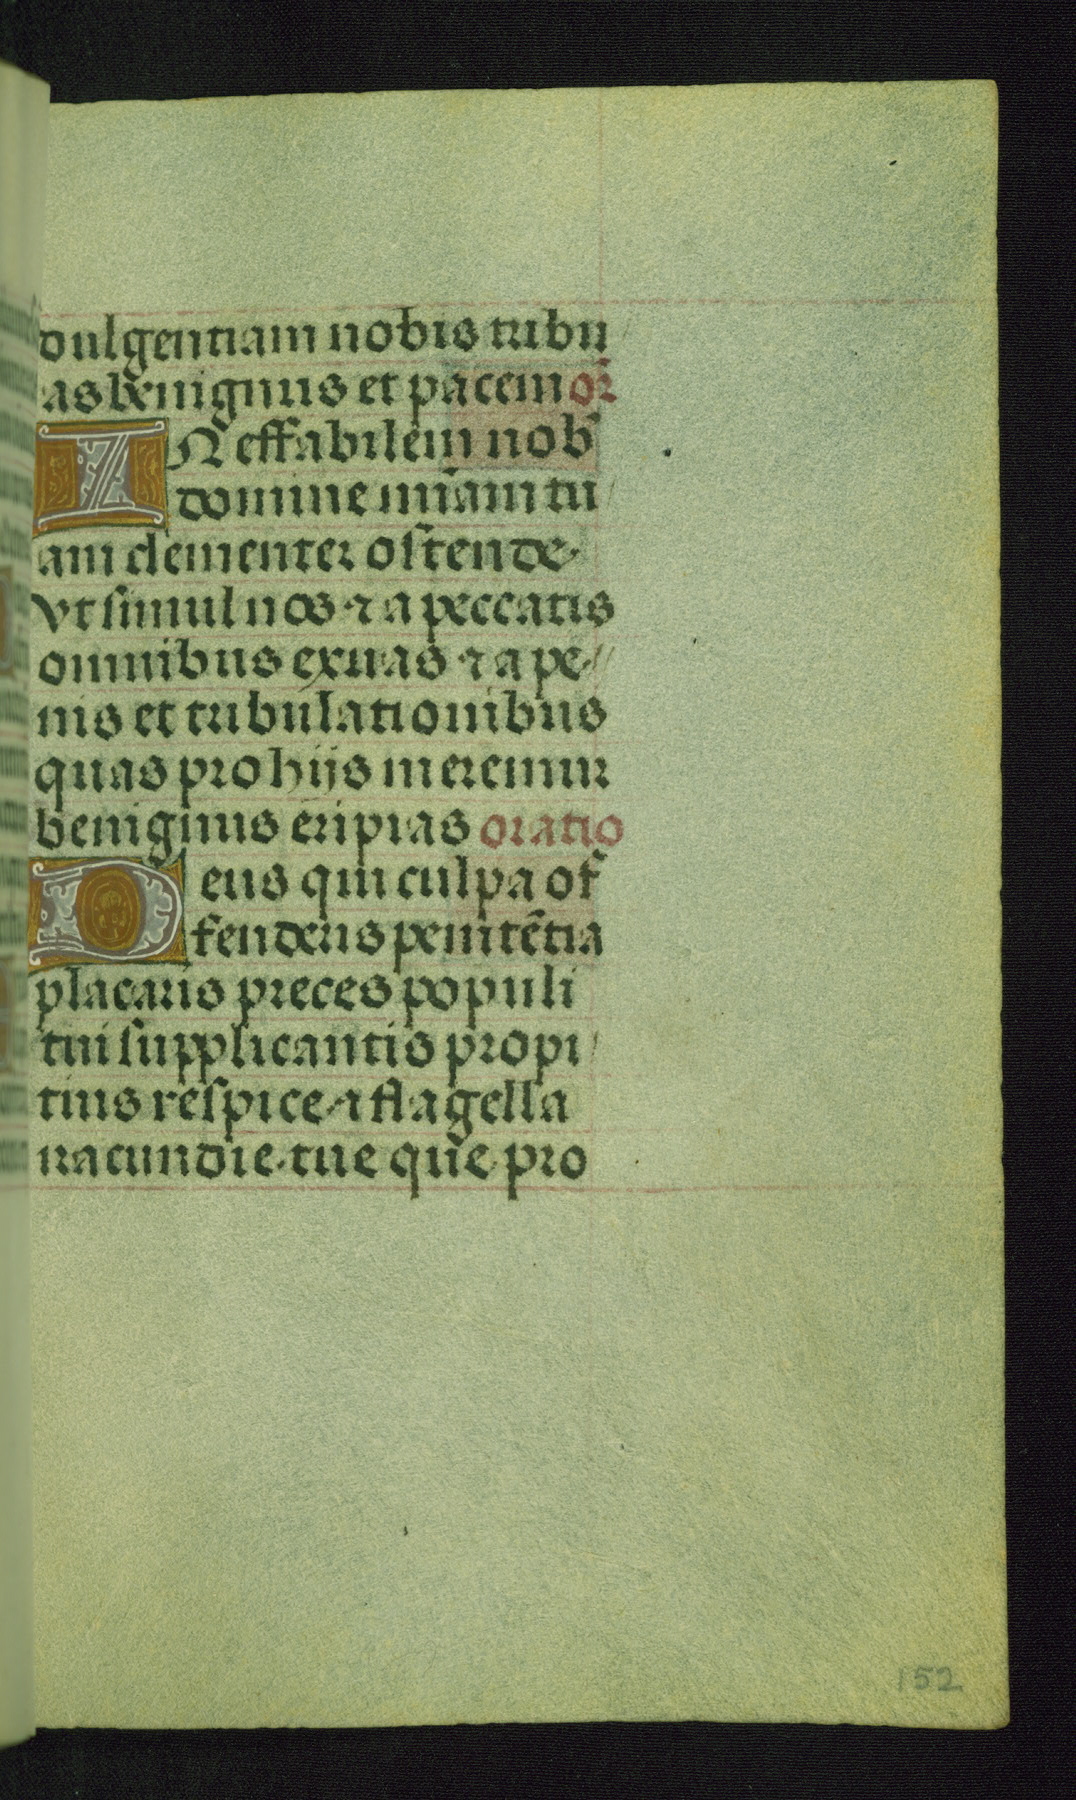 dulgentiam nobis tribu
as benignus et pacem or̄
INeffabilem nob̄
domine mīam tu
am clementer ostende.
vt simul nos ⁊ a peccatis
omnibus exuas ⁊ a pe
nis et tribulationibus
quas pro hijs meremur
benignus eripias oratio
Deus qui culpa of
fenderis penitētia
placaris preces populi
tui supplicantis propi
tius respice ⁊ flagella
iracundie tue que pro
152